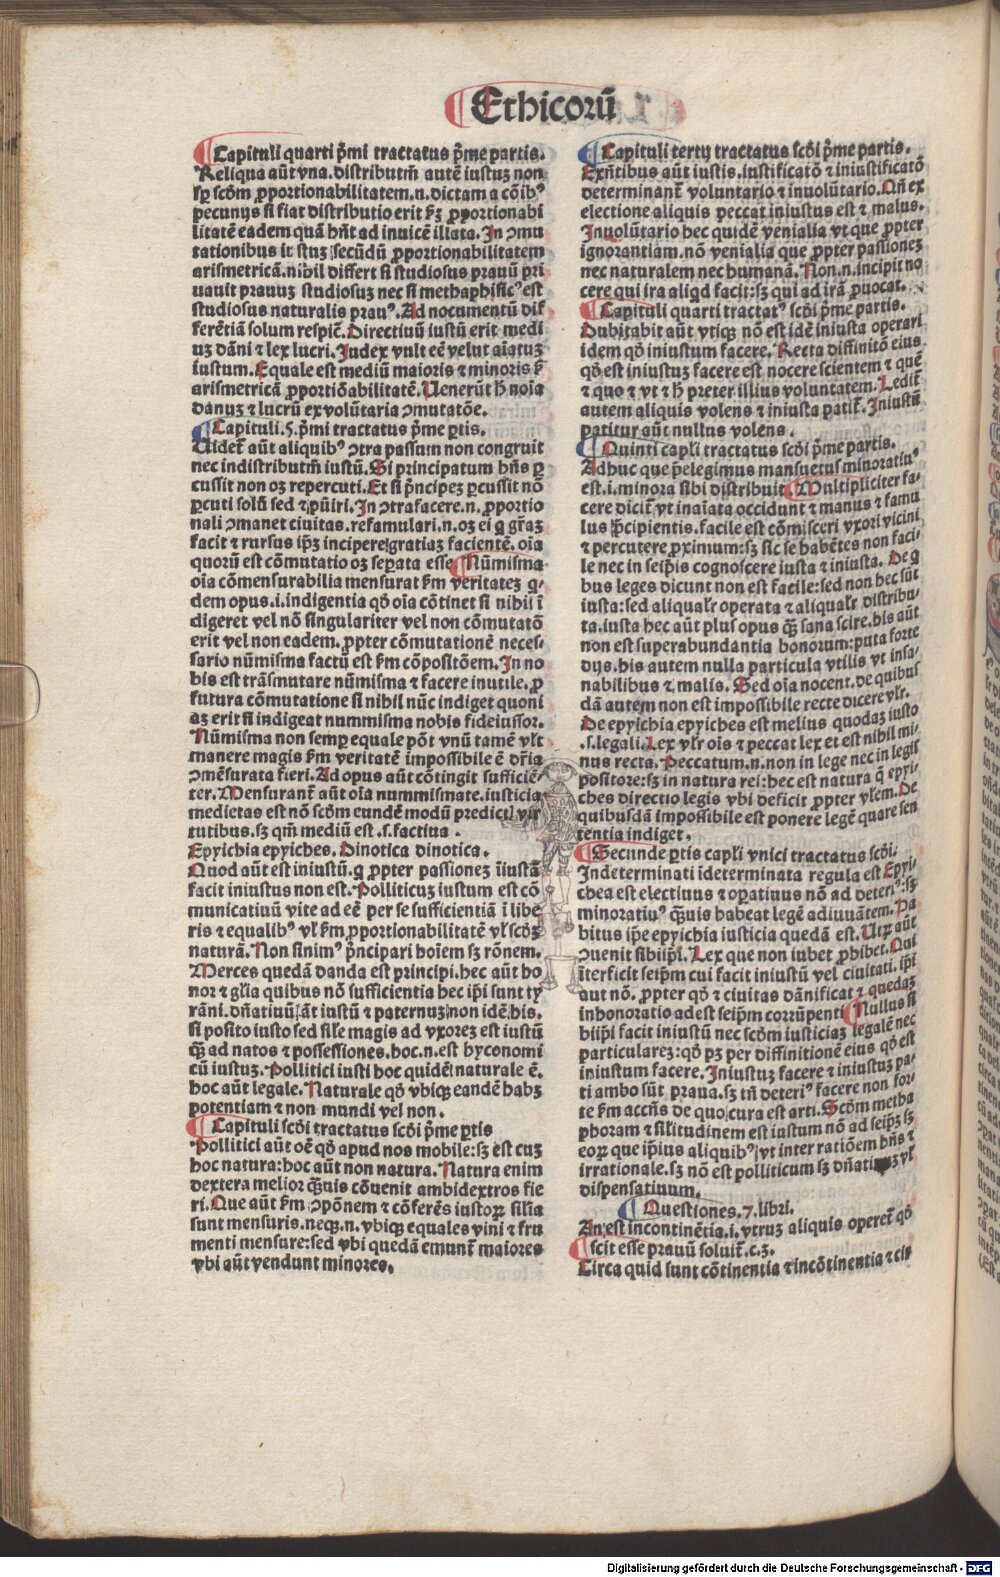 Ethicoꝝ̄
Capituli quarti p̄mi tractatus p̄me partis.
Reliqua aūt vna. distributm̄ autē iustuꝫ non
sꝑ scōm ꝓportionabilitatem. n. dictam a cōibꝰ
pecunijs si fiat distributio erit ẜꝫ ꝓportionabi
litatē eadem quā hn̄t ad inuicē illata. In ↄmu
tationibus iustuꝫ secūdū ꝓportionabilitatem
arismetricā. nihil differt si studiosus prauū pri
uauit prauuꝫ studiosuꝫ nec si methaphisicꝰ est
studiosus naturalis prauꝰ. Ad nocumentū dif
ferētiā solum respic̄. Directiuū iustū erit medi
uꝫ dāni ⁊ lex lucri. Iudex vult eē velut aīatuꝫ
iustum. Equale est mediū maioris ⁊ minoris ẜ
arismetricā ꝓportiōabilitatē. Uenerūt h̄ noīa
danuꝫ ⁊ lucrū ex volūtaria ↄmutatōe.
Capituli. 5. p̄mi tractatus p̄me ꝑtis.
Uidet̄ aūt aliquibꝰ ↄtra passum non congruit
nec indistributm̄ iustū. Si principatum hn̄s ꝑ
cussit non oꝫ repercuti. Et si p̄ncipeꝫ ꝑcussit nō
ꝑcuti solū sed ⁊ pūiri. In ↄtrafacere. n. ꝓportio
nali ↄmanet ciuitas. refamulari. n. oꝫ ei q̄ gr̄aꝫ
facit ⁊ rursus ip̄ꝫ incipere gratiaꝫ facientē. oīa
quorū est cōmutatio oꝫ seꝑata esse. Nūmisma
oīa cōmensurabilia mensurat ẜm veritateꝫ q̇
dem opus. i. indigentia qd̄ oīa cōtinet si nihil ī
digeret vel nō singulariter vel non cōmutatō
erit vel non eadem. ꝓpter cōmutationē neces
sario nūmisma factū est ẜm cōpositōem. In no
bis est trāsmutare nūmisma ⁊ facere inutile. ꝓ
futura cōmutatione si nihil nūc indiget quoni
aꝫ erit si indigeat nummisma nobis fideiussor.
Nūmisma non semꝑ equale pōt vnū tamē vl̄t
manere magis ẜm veritatē impossibile ē dr̄ia
ↄmēsurata fieri. Ad opus aūt cōtingit sufficiē
ter. Mensurant̄ aūt oīa nummismate. iusticia
medietas est nō scōm eundē modū predict vir
tutibus. sꝫ qm̄ mediū est. s. factiua.
Epyichia epyiches. Dinotica dinotica.
Quod aūt est iniustū. q̄ ꝓpter passioneꝫ īiustā
facit iniustus non est. Polliticuꝫ iustum est cō
municatiuū vite ad eē per se sufficientiā ī libe
ris ⁊ equalibꝰ vl̄ ẜm ꝓportionabilitatē vl̄ scōꝫ
naturā. Non sinimꝰ p̄ncipari hoīem sꝫ rōnem.
Merces quedā danda est principi. hec aūt ho
nor ⁊ gl̄ia quibus nō sufficientia hec ip̄i sunt ty
rāni. dn̄atiuū āt iustū ⁊ paternuꝫ non idē. his.
si posito iusto sed sil̄e magis ad vxoreꝫ est iustū
qꝫ̄ ad natos ⁊ possessiones. hoc. n. est hyconomi
cū iustuꝫ. Pollitici iusti hoc quidē naturale ē.
hoc aūt legale. Naturale qd̄ vbiqꝫ eandē habꝫ
potentiam ⁊ non mundi vel non.
Capituli scd̄i tractatus scd̄i p̄me ꝑtis
Pollitici aūt oē qd̄ apud nos mobile: sꝫ est cuꝫ
hoc natura: hoc aūt non natura. Natura enim
dextera melior qꝫ̄uis cōuenit ambidextros fie
ri. Que aūt ẜm ↄpōnem ⁊ cōferēs iustoꝝ silīa
sunt mensuris. neqꝫ. n. vbiqꝫ equales vini ⁊ fru
menti mensure: sed vbi quedā emunt̄ maiores
vbi aūt vendunt minores.
Capituli tertij tractatus scd̄i p̄me partis.
Exn̄tibus aūt iustis. iustificatō ⁊ iniustificatō
determinant̄ voluntario ⁊ inuolūtario. Qn̄ ex
electione aliquis peccat iniustus est ⁊ malus.
Inuolūtario hec quidē venialia vt que ꝓpter
ignorantiam. nō venialia que ꝓpter passioneꝫ
nec naturalem nec humanā. Non. n. incipit no
cere qui ira aliqd facit: sꝫ qui ad irā ꝓuocat.
Capituli quarti tractatꝰ scd̄i p̄me partis.
Dubitabit aūt vtiqꝫ nō est idē iniusta operari
idem qd̄ iniustum facere. Recta diffinitō eius
qd̄ est iniustuꝫ facere est nocere scientem ⁊ quē
⁊ quo ⁊ vt ⁊ h̄ preter illius voluntatem. Ledit̄
autem aliquis volens ⁊ iniusta patit̄. Iniustū
patitur aūt nullus volens.
Quinti capl̄i tractatus scd̄i p̄me partis.
Adhuc que p̄elegimus mansuetus minoratiuꝰ
est. i. minora sibi distribuit. Multipliciter fa
cere dicit̄ vt inaīata occidunt ⁊ manus ⁊ famu
lus p̄cipientis. facile est cōmisceri vxori vicini
⁊ percutere ꝓximum: sꝫ sic se habētes non faci
le nec in seip̄is cognoscere iusta ⁊ iniusta. De q̄
bus leges dicunt non est facile: sed non hec sūt
iusta: sed aliqual̄r operata ⁊ aliqual̄r distribu
ta. iusta hec aūt plus opus qꝫ̄ sana scire. his aūt
non est superabundantia bonorum: puta forte
dijs. his autem nulla particula vtilis vt insa
nabilibus ⁊ malis. Sed oīa nocent. de quibus
dā autem non est impossibile recte dicere vl̄r.
De epyichia epyiches est melius quodaꝫ iusto
. s. legali. Lex vl̄r ois ⁊ peccat lex et est nihil mi
nus recta. Peccatum. n. non in lege nec in legis
positore: sꝫ in natura rei: hec est natura q̄ epyi
ches directio legis vbi deficit ꝓpter vl̄em. De
quibusdā impossibile est ponere legē quare sen
tentia indiget.
Secunde ꝑtis capl̄i vnici tractatus scd̄i.
Indeterminati īdeterminata regula est Epyi
chea est electiuus ⁊ oꝑatiuus nō ad deteriꝰ: sꝫ
minoratiuꝰ qꝫ̄uis habeat legē adiuuātem. Ha
bitus ip̄e epyichia iusticia quedā est. Utꝝ aūt
ↄuenit sibiip̄i. Lex que non iubet ꝓhibet. Qui
īterficit seip̄m cui facit iniustū vel ciuitati. ip̄i
aut nō. ꝓpter qd̄ ⁊ ciuitas dānificat ⁊ quedaꝫ
inhonoratio adest seip̄m corrūpenti. Nullus si
biip̄i facit iniustū nec scōm iusticiaꝫ legalē nec
particulareꝫ: qd̄ pꝫ per diffinitionē eius qd̄ est
iniustum facere. Iniustuꝫ facere ⁊ iniustuꝫ pa
ti ambo sūt praua. sꝫ tn̄ deteriꝰ facere non for
te ẜm accn̄s de quo cura est arti. Scōm metha
phoram ⁊ sil̄itudinem est iustum nō ad seip̄ꝫ sꝫ
eoꝝ que ip̄ius aliquibꝰ vt inter ratiōem hn̄s ⁊
irrationale. sꝫ nō est polliticum sꝫ dn̄atiuuꝫ vl̄
dispensatiuum.
Questiones. 7. libri.
An est incontinētia. i. vtruꝫ aliquis operet̄ qd̄
scit esse prauū soluit̄. c. 3.
Circa quid sunt cōtinentia ⁊ incōtinentia ⁊ cir
Digitalisierung gefördert durch die Deutsche Forschungsgemeinschaft - DFG